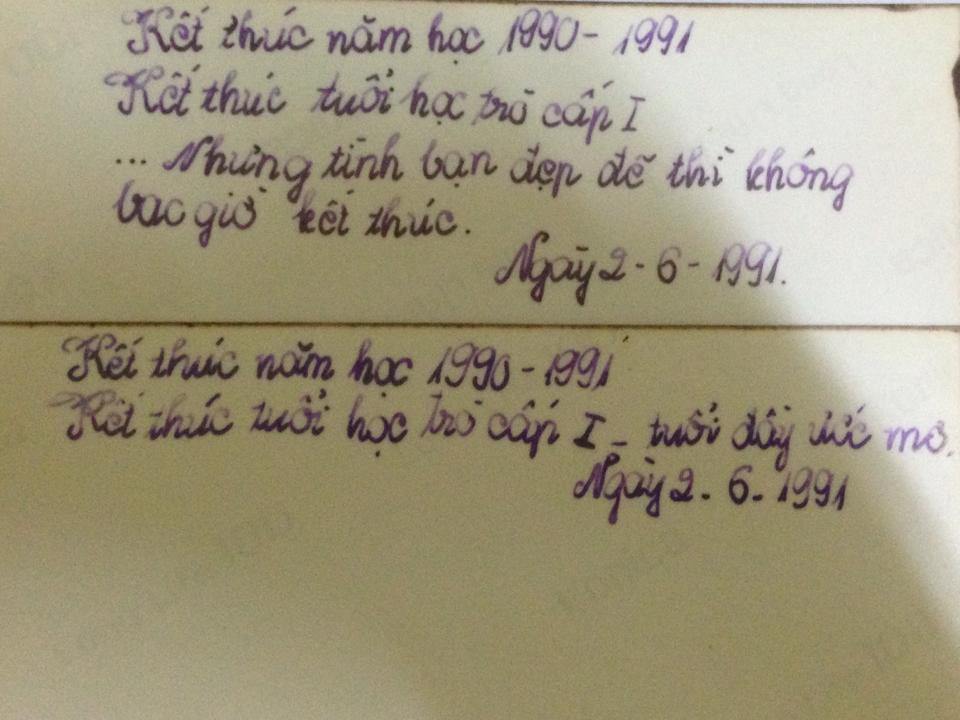 Kết thúc năm học 1990 - 1991
Kết thúc tuổi học trò cấp I
... Nhưng tình bạn đẹp đẽ thì không
bao giờ kết thúc.
Ngày 2 - 6 - 1991.
Kết thúc năm học 1990 - 1991
Kết thúc tuổi học trò cấp I - tuổi đầy ước mơ.
Ngày 2 - 6 - 1991